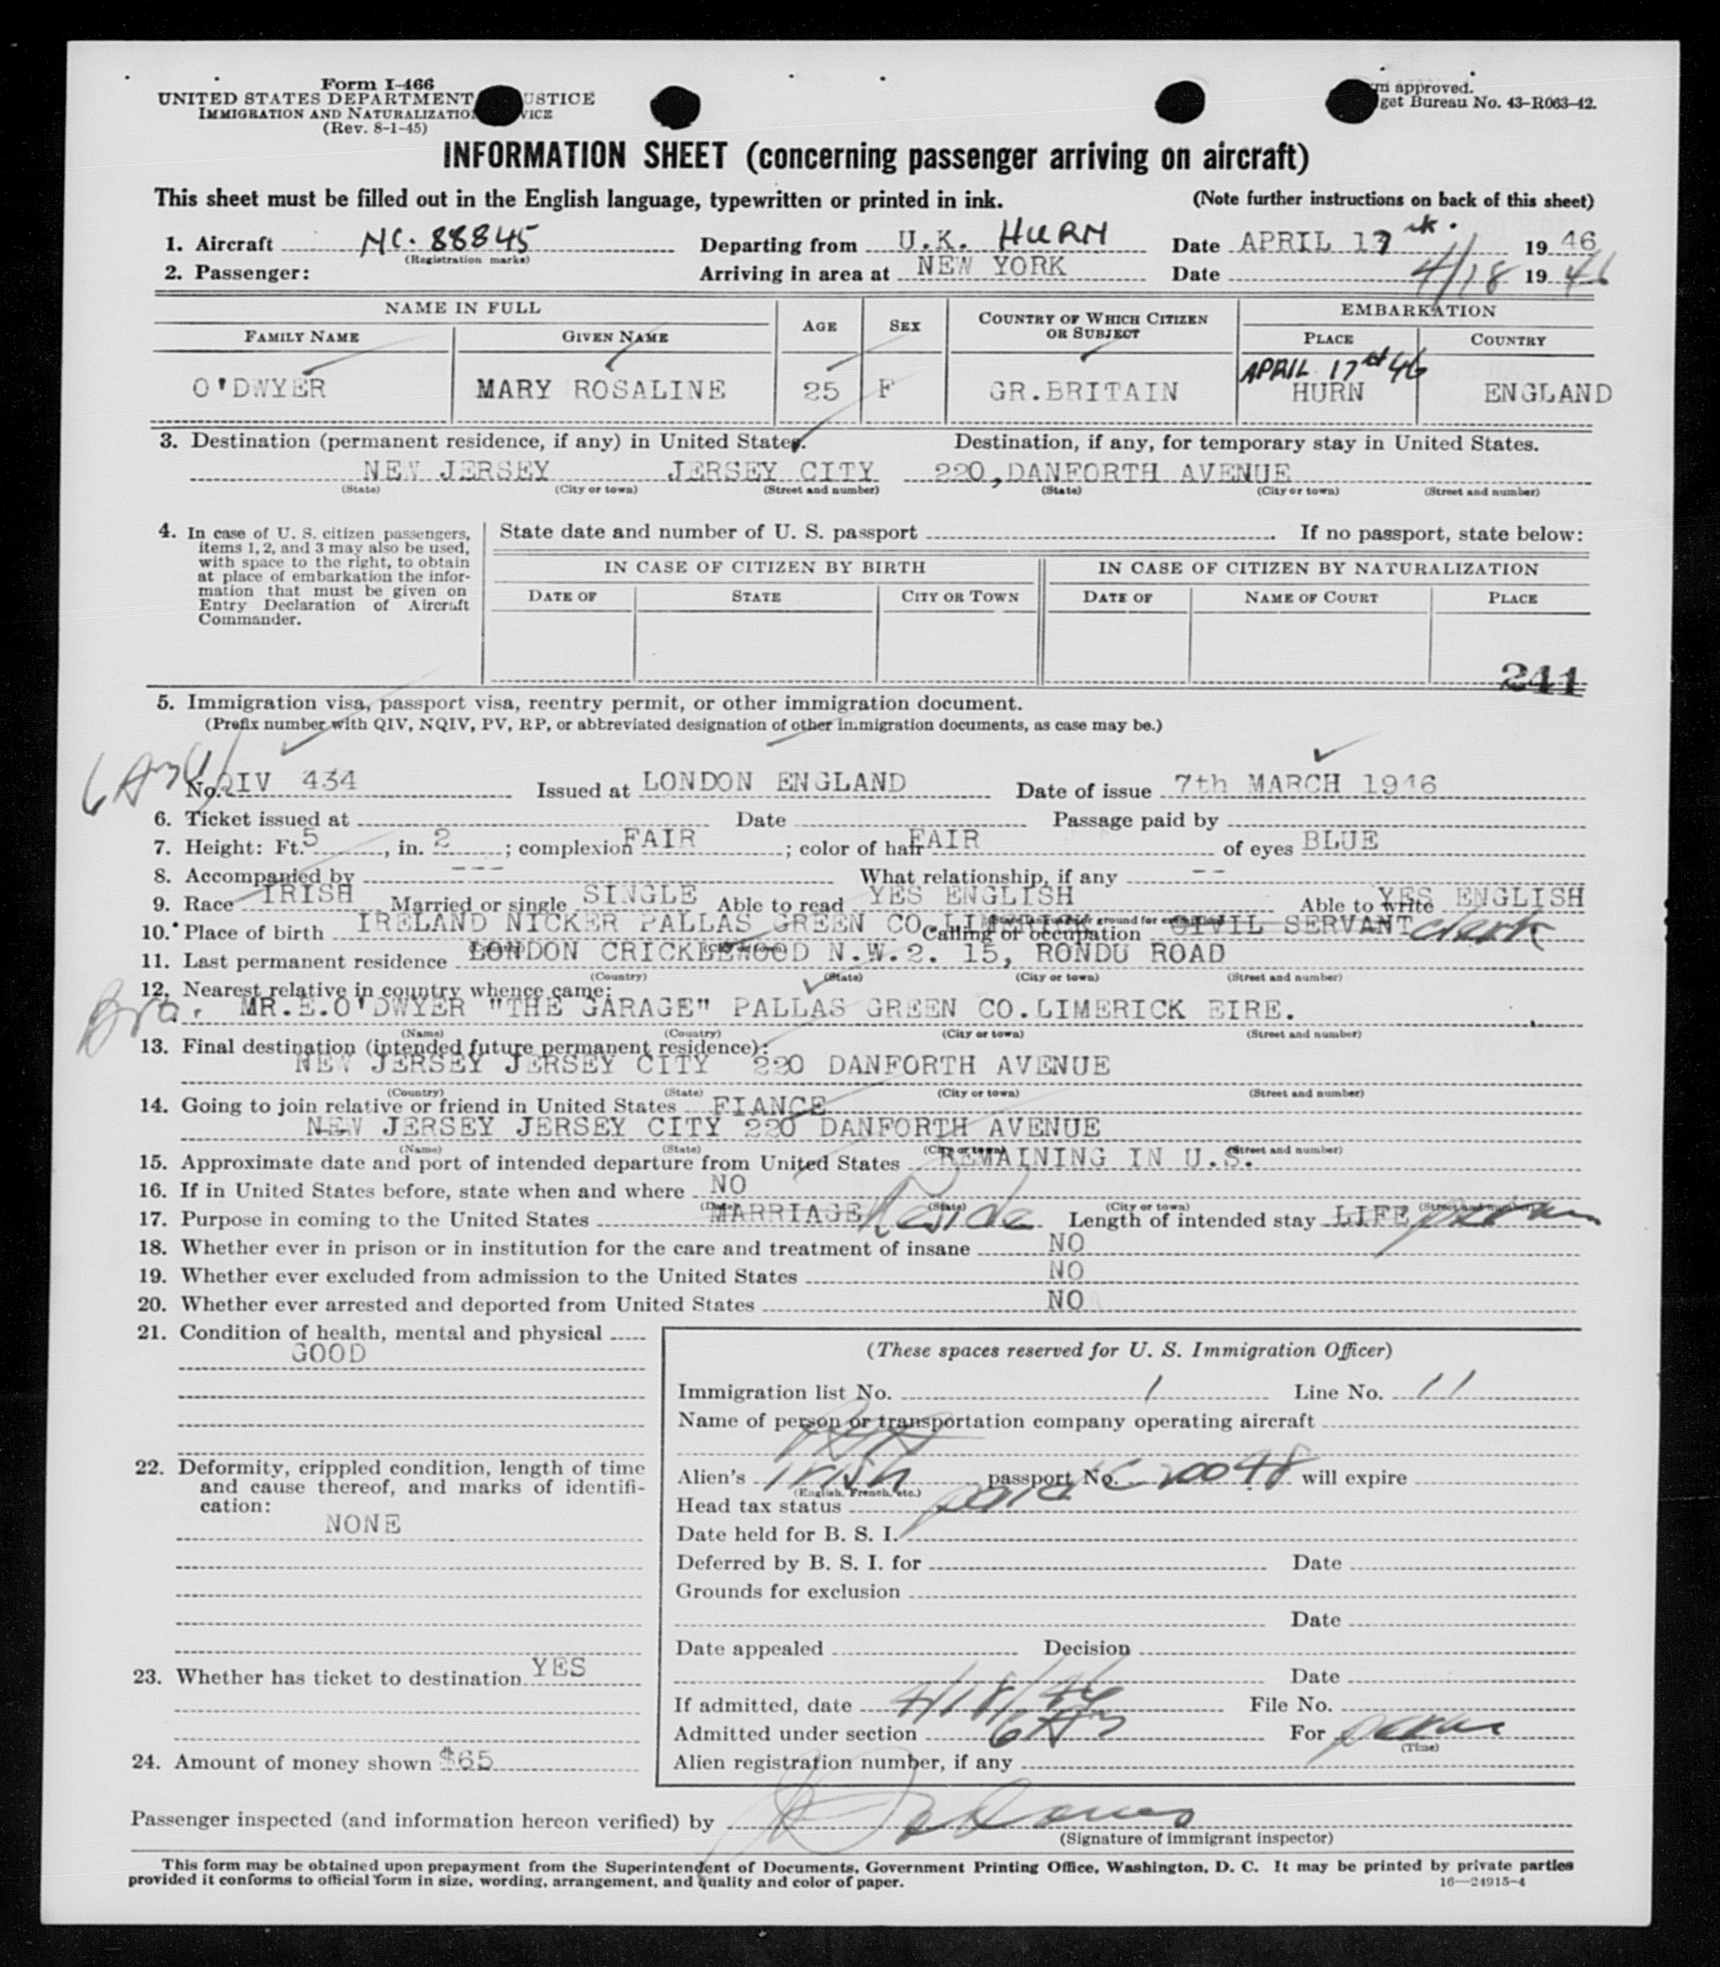 Form I-466
UNITED STATES DEPARTMENT JUSTICE
IMMIGRATION AND NATURALIZATION
(Rev. 8-1-45)
approved.
Bureau No. 43-R063-42.
INFORMATION SHEET (concerning passenger arriving on aircraft)
This sheet must be filled out in the English language, typewritten or printed in ink. (Note further instructions on back of this sheet)
1. Aircraft NC. 88845 Departing from U.K. HURN Date APRIL 17 th. 19 46
(Registration marks)
2. Passenger: Arriving in area at NEW YORK Date 4/18 19 46
NAME IN FULL AGE SEX COUNTRY OF WHICH CITIZEN OR SUBJECT EMBARKATION
FAMILY NAME GIVEN NAME PLACE COUNTRY
APRIL 17th 46
O'DWYER MARY ROSALINE 25 F GR.BRITAIN HURN ENGLAND
3. Destination (permanent residence, if any) in United States. Destination, if any, for temporary stay in United States.
NEW JERSEY JERSEY CITY 220, DANFORTH AVENUE
(State) (City or town) (Street and number) (State) (City or town) (Street and number)
4. In case of U. S. citizen passengers, items 1, 2, and 3 may also be used, with space to the right, to obtain at place of embarkation the information that must be given on Entry Declaration of Aircraft Commander.
State date and number of U. S. passport If no passport, state below:
IN CASE OF CITIZEN BY BIRTH IN CASE OF CITIZEN BY NATURALIZATION
DATE OF STATE CITY OR TOWN DATE OF NAME OF COURT PLACE
241
5. Immigration visa, passport visa, reentry permit, or other immigration document.
(Prefix number with QIV, NQIV, PV, RP, or abbreviated designation of other immigration documents, as case may be.)
No. QIV 434 Issued at LONDON ENGLAND Date of issue 7th MARCH 1946
6. Ticket issued at Date Passage paid by
7. Height: Ft. 5, in. 2; complexion FAIR; color of hair FAIR of eyes BLUE
8. Accompanied by --- What relationship, if any --
9. Race IRISH Married or single SINGLE Able to read YES ENGLISH Able to write YES ENGLISH
10. Place of birth IRELAND NICKER PALLAS GREEN CO.LIMERICK Calling or occupation CIVIL SERVANT clerk
11. Last permanent residence LONDON CRICKLEWOOD N.W.2. 15, RONDU ROAD
(Country) (State) (City or town) (Street and number)
12. Nearest relative in country whence came:
Bro. MR.E.O'DWYER "THE GARAGE" PALLAS GREEN CO.LIMERICK EIRE.
(Name) (Country) (City or town) (Street and number)
13. Final destination (intended future permanent residence):
NEW JERSEY JERSEY CITY 220 DANFORTH AVENUE
(Country) (State) (City or town) (Street and number)
14. Going to join relative or friend in United States FIANCE
NEW JERSEY JERSEY CITY 220 DANFORTH AVENUE
(Name) (State) (City or town) (Street and number)
15. Approximate date and port of intended departure from United States REMAINING IN U.S.
16. If in United States before, state when and where NO
(Date) (State) (City or town) (Street and number)
17. Purpose in coming to the United States MARRIAGE Reside Length of intended stay LIFE perm
18. Whether ever in prison or in institution for the care and treatment of insane NO
19. Whether ever excluded from admission to the United States NO
20. Whether ever arrested and deported from United States NO
21. Condition of health, mental and physical
GOOD
22. Deformity, crippled condition, length of time and cause thereof, and marks of identification:
NONE
23. Whether has ticket to destination YES
24. Amount of money shown $65
(These spaces reserved for U. S. Immigration Officer)
Immigration list No. 1 Line No. 11
Name of person or transportation company operating aircraft
Alien's Irish passport No. 20048 will expire
(English, French, etc.)
Head tax status paid
Date held for B. S. I.
Deferred by B. S. I. for Date
Grounds for exclusion
Date
Date appealed Decision
Date
If admitted, date 4/18/46 File No.
Admitted under section 6A3 For perm
(Time)
Alien registration number, if any
Passenger inspected (and information hereon verified) by
(Signature of immigrant inspector)
This form may be obtained upon prepayment from the Superintendent of Documents, Government Printing Office, Washington, D. C. It may be printed by private parties
provided it conforms to official form in size, wording, arrangement, and quality and color of paper. 16—24915-4